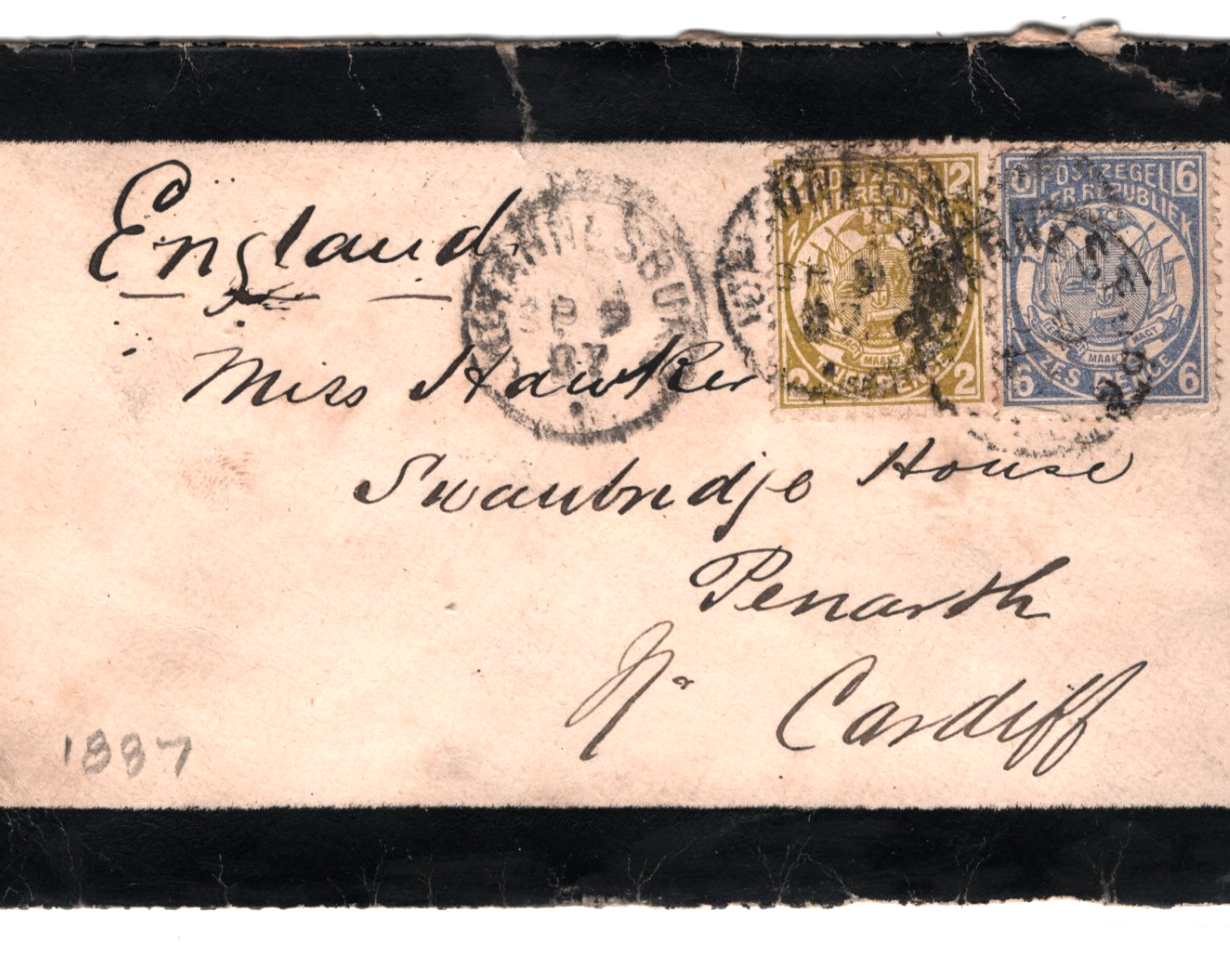 England
Miss Hawker
Swanbridge House
Penarth
Nr Cardiff
1887
JOHANNESBURG
87
2 POSTZEGEL 2
ZUID AFR. REPUBLIEK
EENDRAGT MAAKT MAGT
TWEE PENCE
2 2
6 POSTZEGEL 6
Z. AFR. REPUBLIEK
EENDRAGT MAAKT MAGT
ZES PENCE
6 6